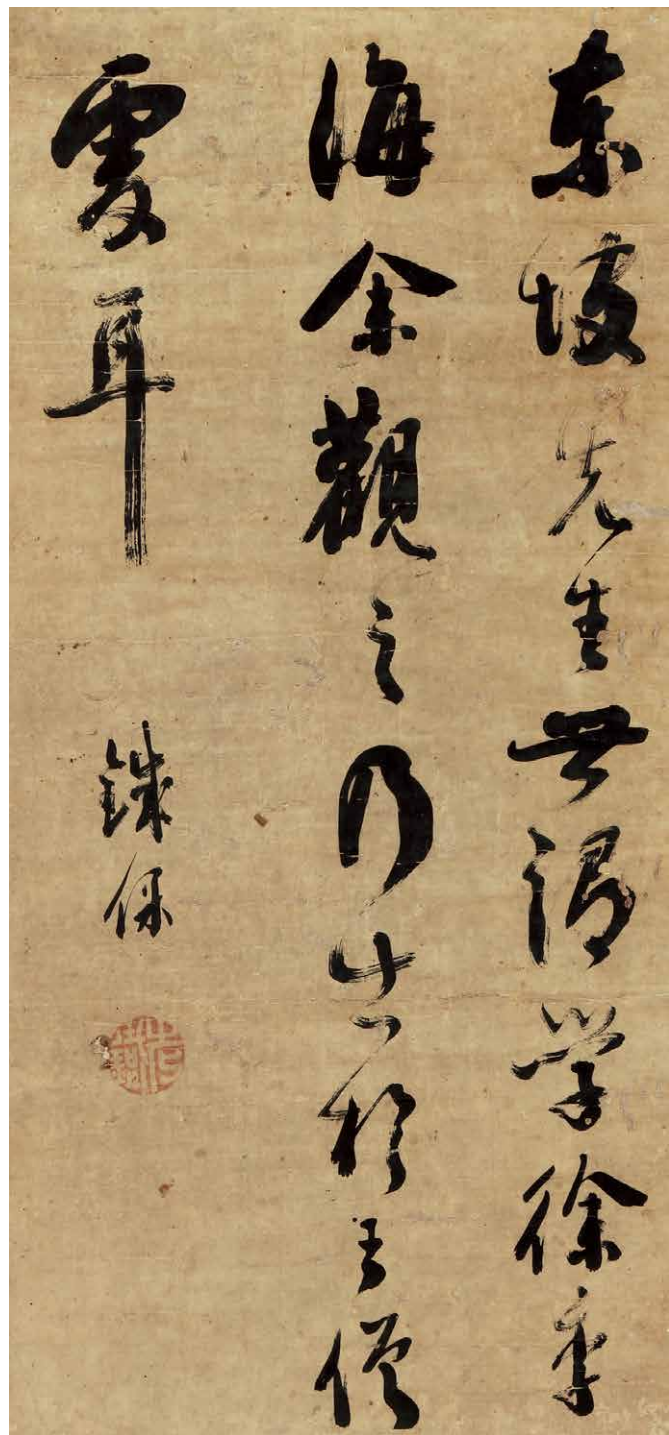 東坡先生世謂學徐季
海余觀之乃出於王僧
虔耳
鐵保